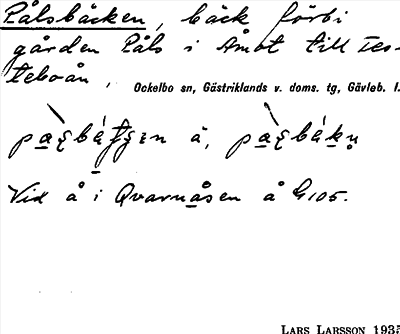 Pålsbäcken, bäck förbi
gården Påls i Åmot till Tes-
teboån,
Ockelbo sn, Gästriklands v. doms. tg, Gävleb. l.
å,
Vid å i Qvarnåsen å G 105.
LARS LARSSON 1935